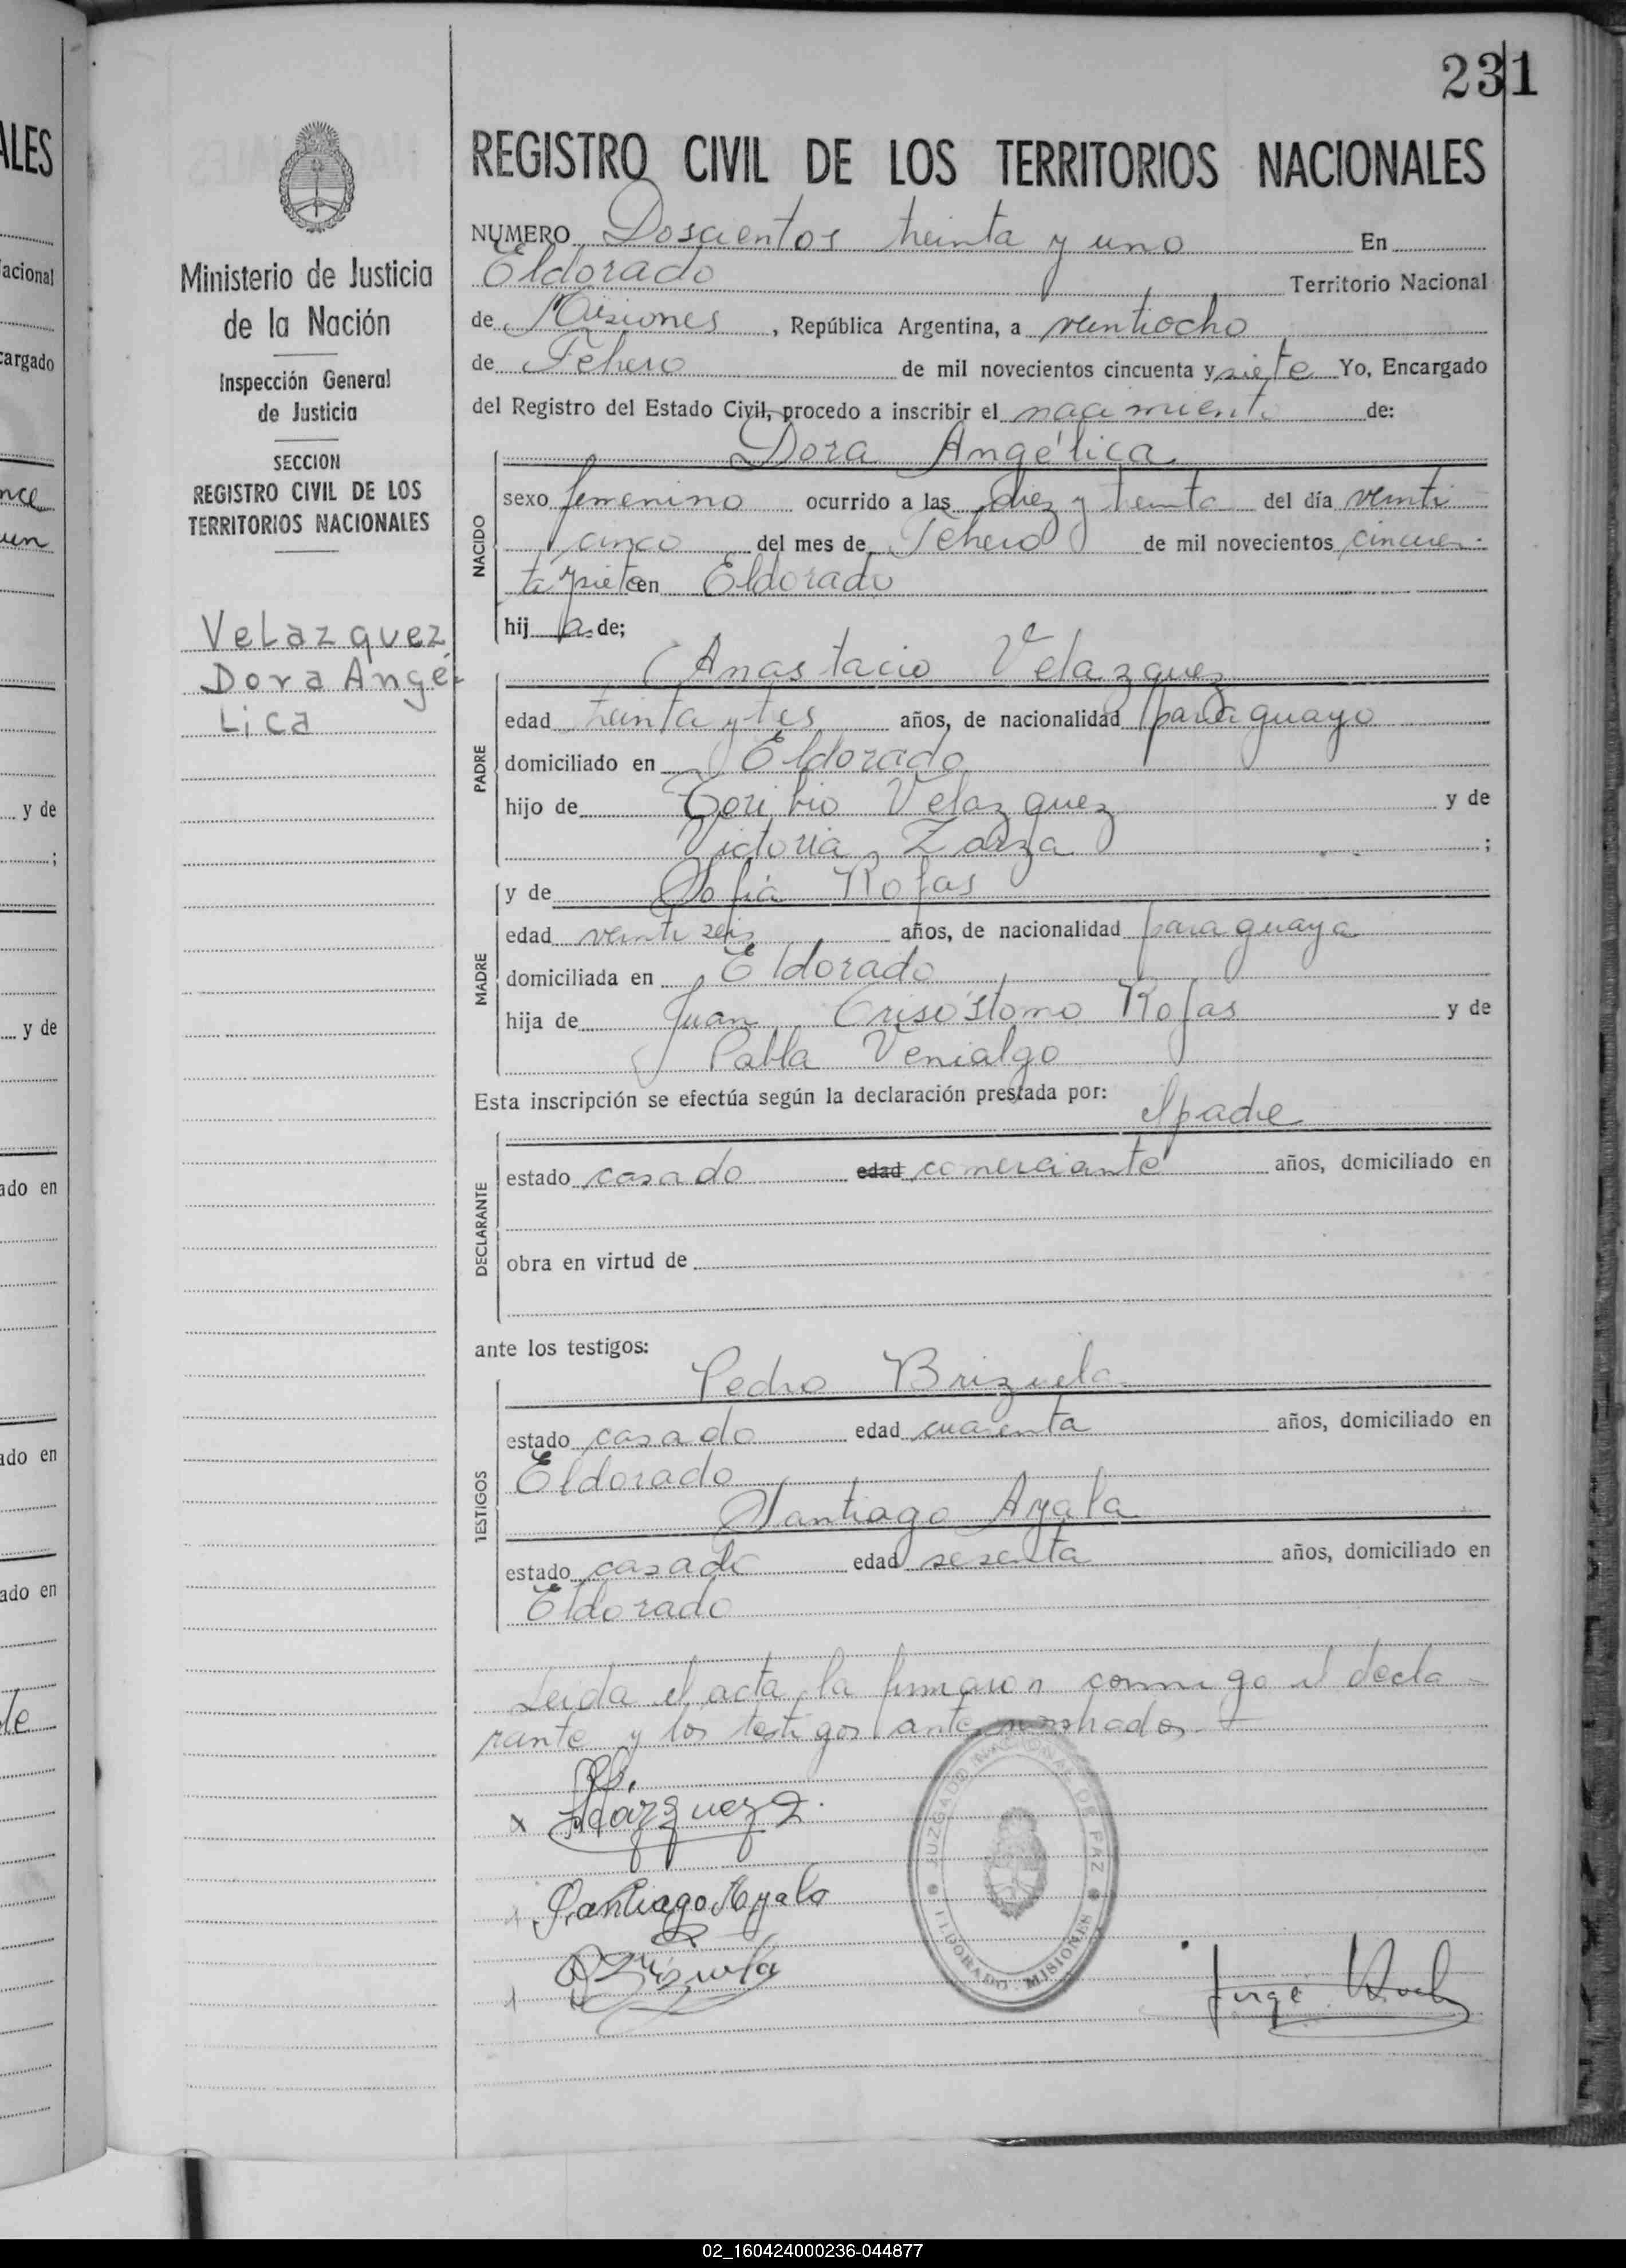 231
ALES
REGISTRO CIVIL DE LOS TERRITORIOS NACIONALES
Ministerio de Justicia
de la Nación
Inspección General
de Justicia
SECCION
REGISTRO CIVIL DE LOS
TERRITORIOS NACIONALES
Velazquez
Dora Angé-
Lica
NUMERO Doscientos treinta y uno En
Eldorado Territorio Nacional
de Misiones, República Argentina, a ventiocho
de Febrero de mil novecientos cincuenta y siete Yo, Encargado
del Registro del Estado Civil, procedo a inscribir el nacimiento de:
Dora Angélica
NACIDO
sexo femenino ocurrido a las diez y treinta del día veinti
cinco del mes de Febrero de mil novecientos cincuen-
ta y siete en Eldorado
hij a de;
Anastacio Velazquez
PADRE
edad treinta y tres años, de nacionalidad paraguayo
domiciliado en Eldorado
hijo de Toribio Velazquez y de
Victoria Zarza ;
y de Sofia Rojas
MADRE
edad veinti seis años, de nacionalidad paraguaya
domiciliada en Eldorado
hija de Juan Crisóstomo Rojas y de
Pabla Venialgo
Esta inscripción se efectúa según la declaración prestada por:
el padre
DECLARANTE
estado casado edad comerciante años, domiciliado en
obra en virtud de
ante los testigos:
Pedro Brizuela
TESTIGOS
estado casado edad cuarenta años, domiciliado en
Eldorado
Santiago Ayala
estado casado edad sesenta años, domiciliado en
Eldorado
Leida el acta, la firmaron conmigo el decla-
rante y los testigos antes nombrados.-
x Velázquez Z.
Santiago Ayala
Brizuela
JUZGADO NACIONAL DE PAZ
ELDORADO. MISIONES
Jorge
acional
cargado
nce
un
y de
;
y de
ado en
ado en
ado en
02_160424000236-044877